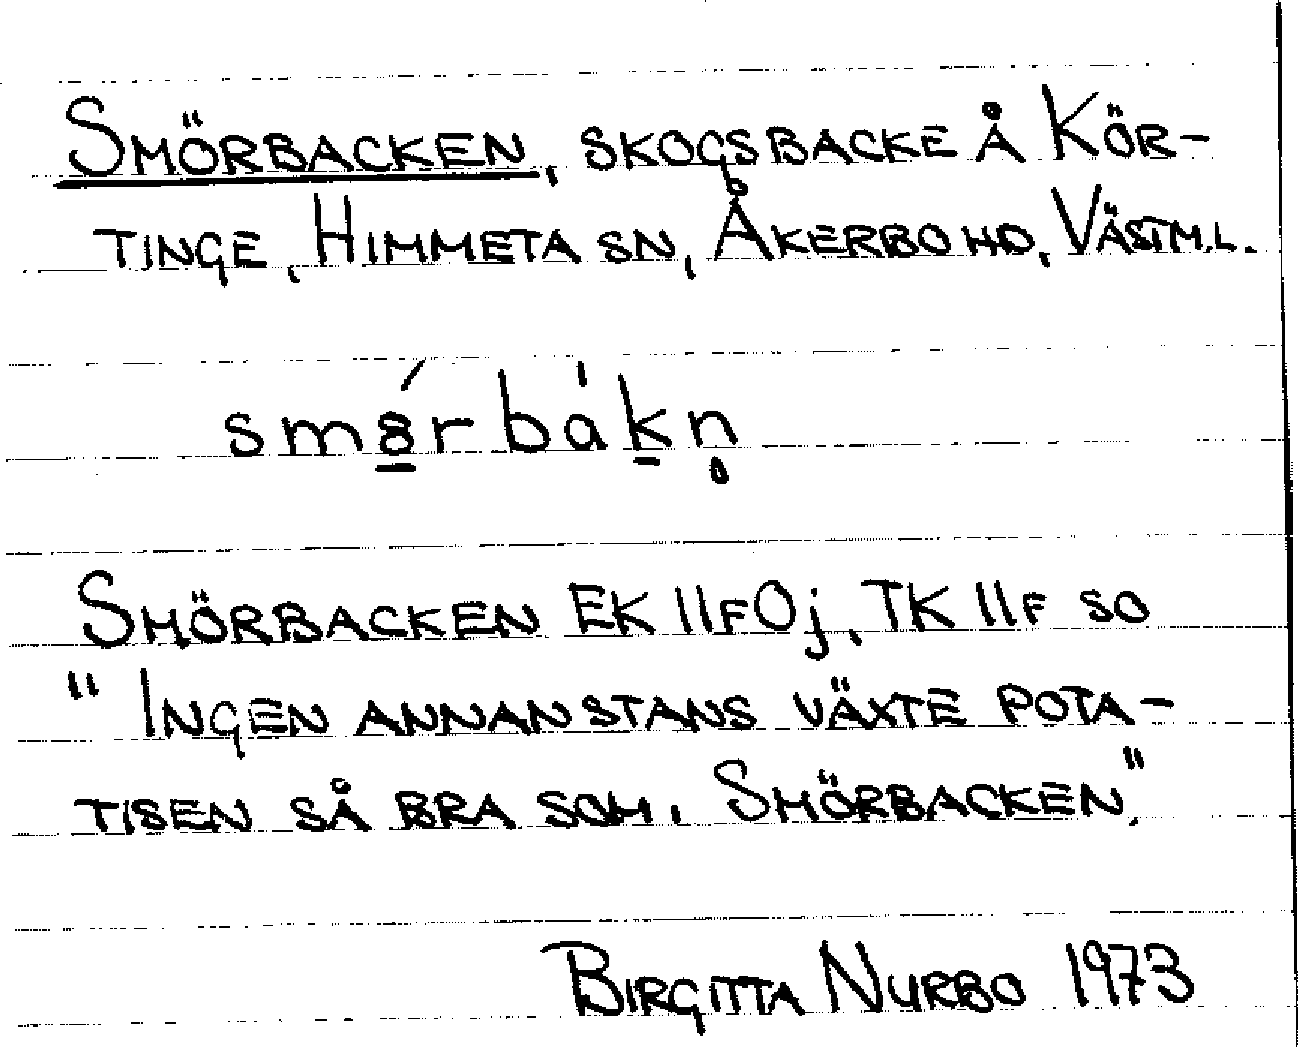 SMÖRBACKEN, SKOGSBACKE Å KÖR-
TINGE, HIMMETA SN, ÅKERBO HD, VÄSTM.L.
smȣ̱́rbàḵn̥
SMÖRBACKEN EK 11F0j, TK 11F SO
"INGEN ANNANSTANS VÄXTE POTA-
TISEN SÅ BRA SOM I SMÖRBACKEN."
BIRGITTA NURBO 1973